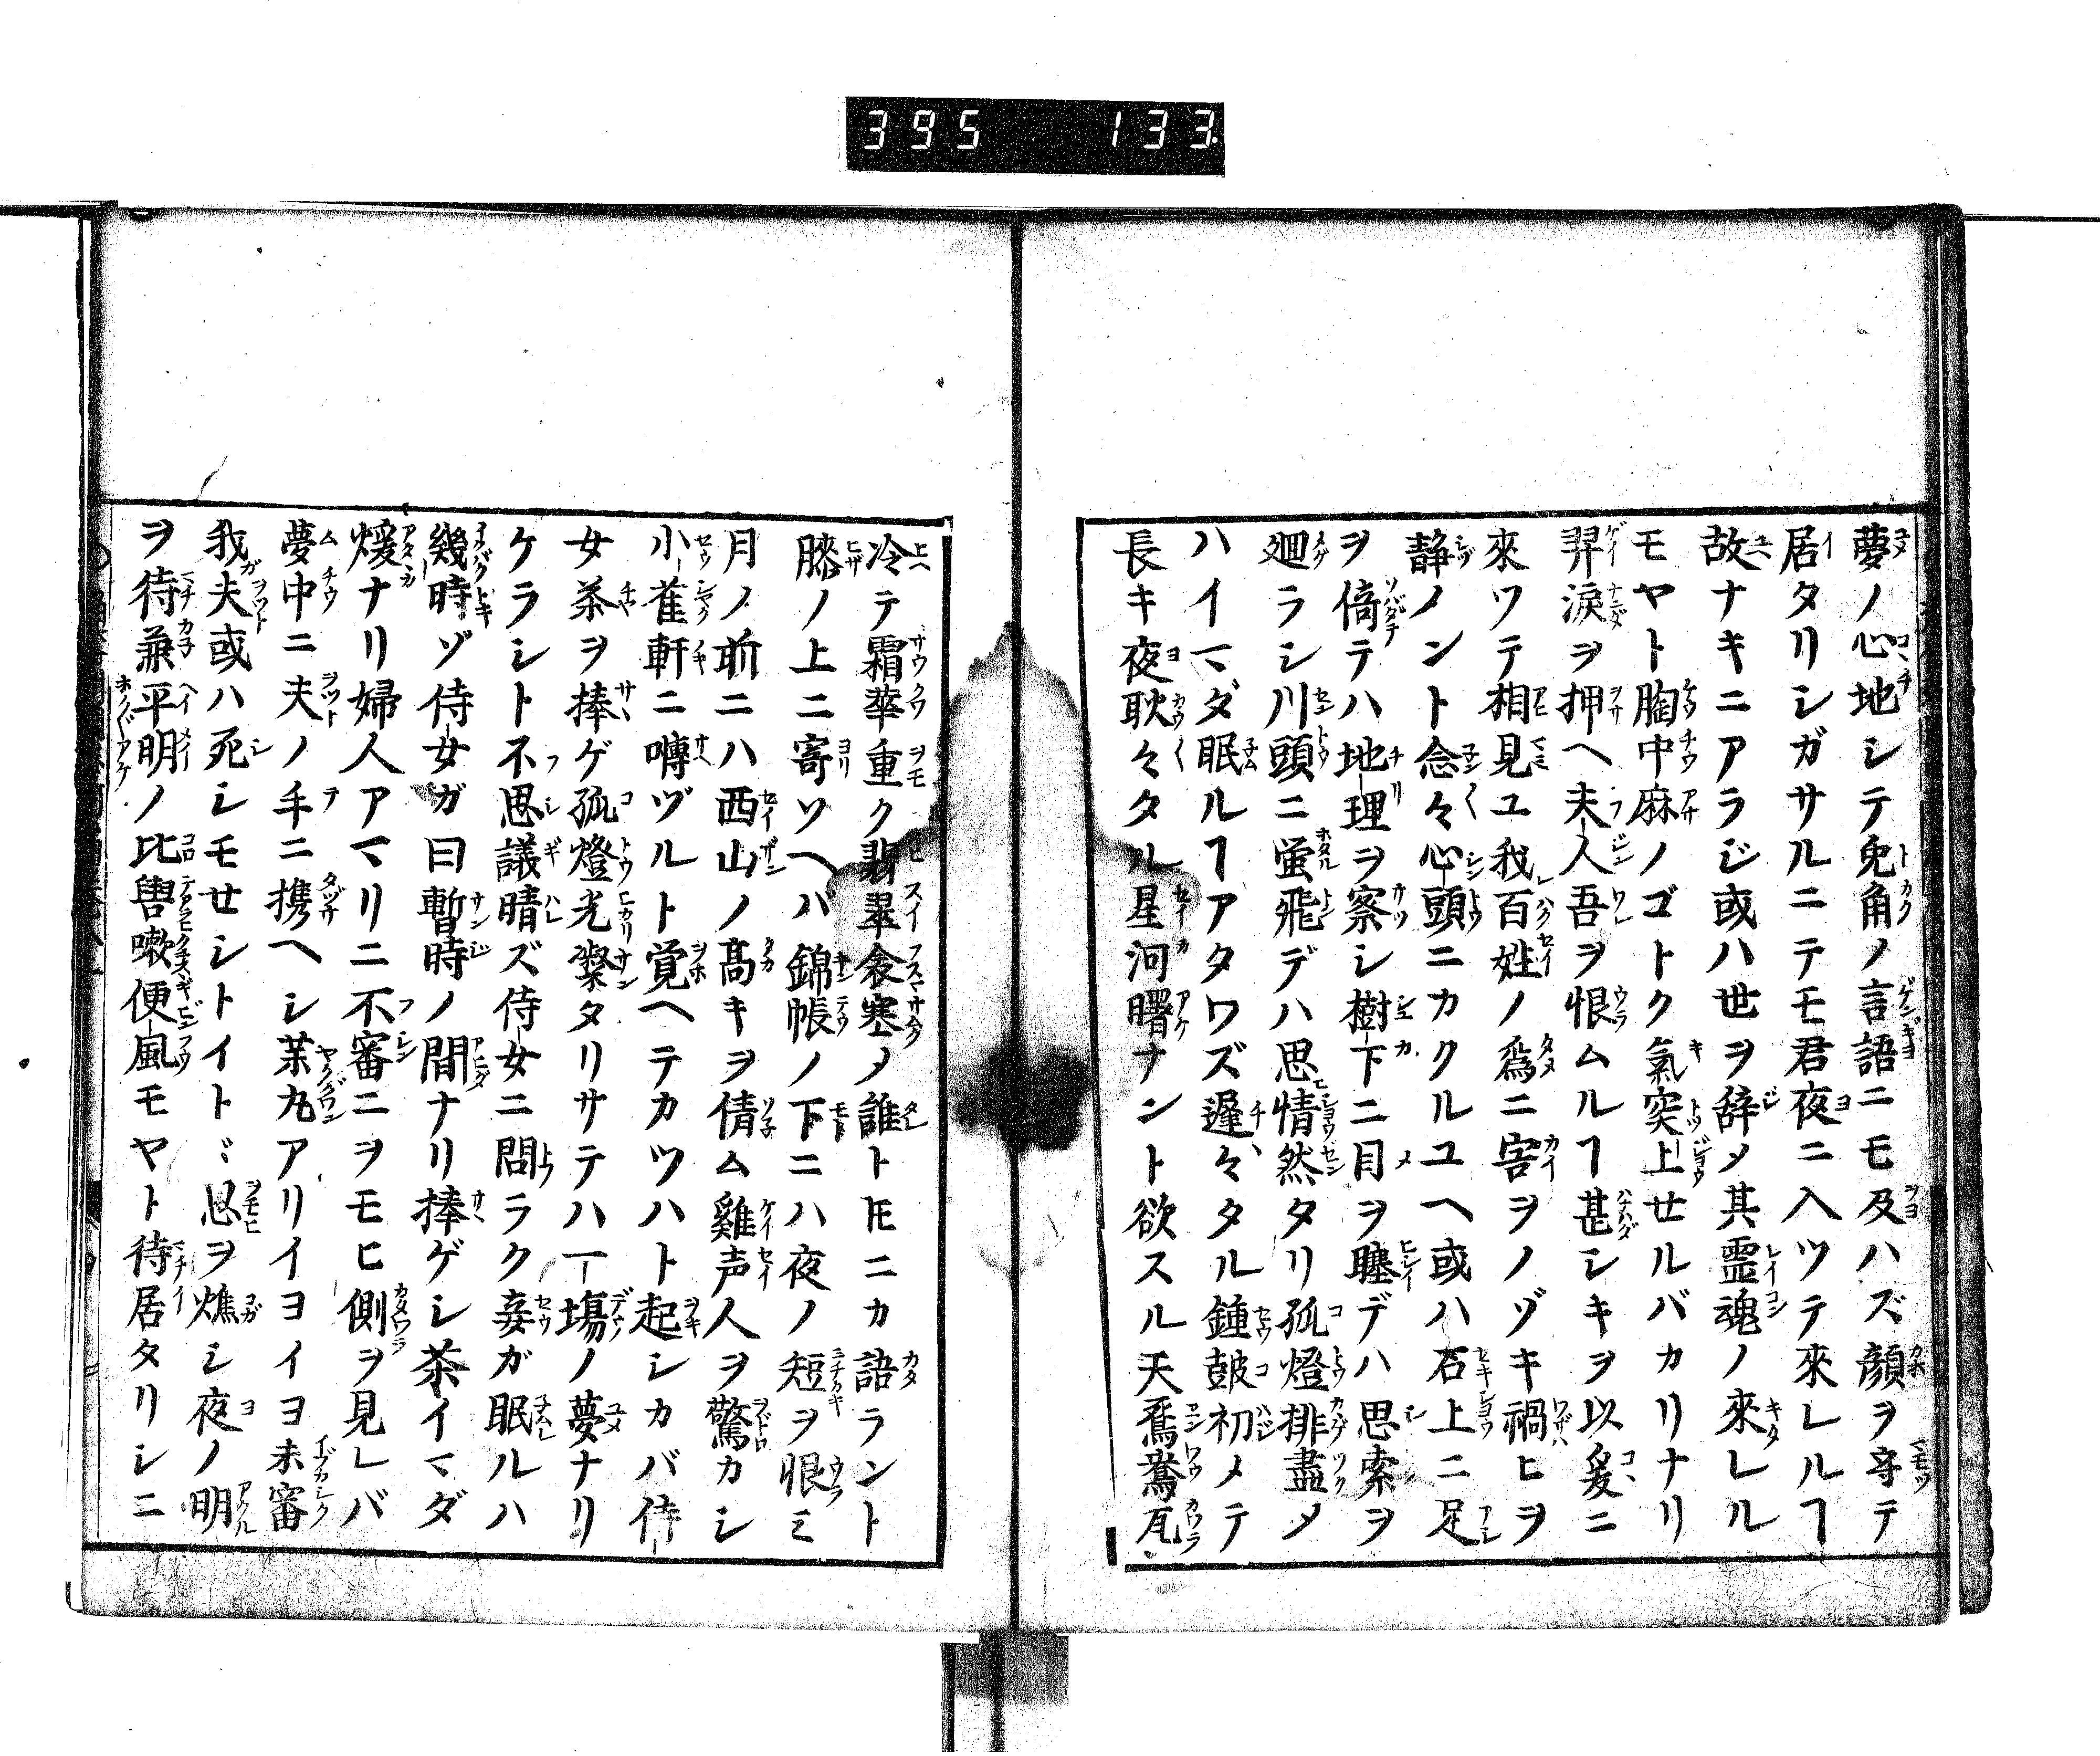 395 133
夢ノ心地シテ兔角ノ言語ニモ及ハズ顔ヲ守テ
居タリシガサルニテモ君夜ニ入ツテ來レルヿ
故ナキニアラジ或ハ世ヲ辞メ其霊魂ノ來レル
モヤト胸中麻ノゴトク氣突上せルバカリナリ
羿淚ヲ押ヘ夫人吾ヲ恨ムルヿ甚シキヲ以爰ニ
來ワテ相見ユ我百姓ノ爲ニ害ヲノゾキ禍ヒヲ
静メント念々心頭ニカクルユヘ或ハ石上ニ足
ヲ倚テハ地理ヲ察シ樹下ニ目ヲデハ思索ヲ
廻ラシ川頭ニ蛍飛デハ思情然タリ孤燈排盡メ
ハイマダ眠ルヿアタワズ遲々タル鍾皷初メテ
長キ夜耿々タル星河曙ナント欲スル天鴛鴦瓦
冷テ霜華重ク翡翠衾寒メ誰トトモニカ語ラント
膝ノ上ニ寄ソヘバ錦帳ノ下ニハ夜ノ短ヲ恨ミ
月ノ前ニハ西山ノ髙キヲ倩ム雞声人ヲ驚カシ
小雀軒ニ囀ヅルト覚ヘテカツハト起シカバ侍
女茶ヲ捧ゲ孤燈光粲タリサテハ一塲ノ夢ナリ
ケラシト不思議晴ズ侍女ニ問ラク妾ガ眠ルハ
幾時ゾ侍女ガ曰暫時ノ間ナリ捧ゲシ茶イマダ
煖ナリ婦人アマリニ不審ニヲモヒ側ヲ見レバ
夢中ニ夫ノ手ニ携ヘシ薬丸アリイヨイヨ未審
我夫或ハ死シモせシトイトヾ思ヲ燋シ夜ノ明
ヲ待兼平明ノ比嗽便風モヤト待居タリシニ